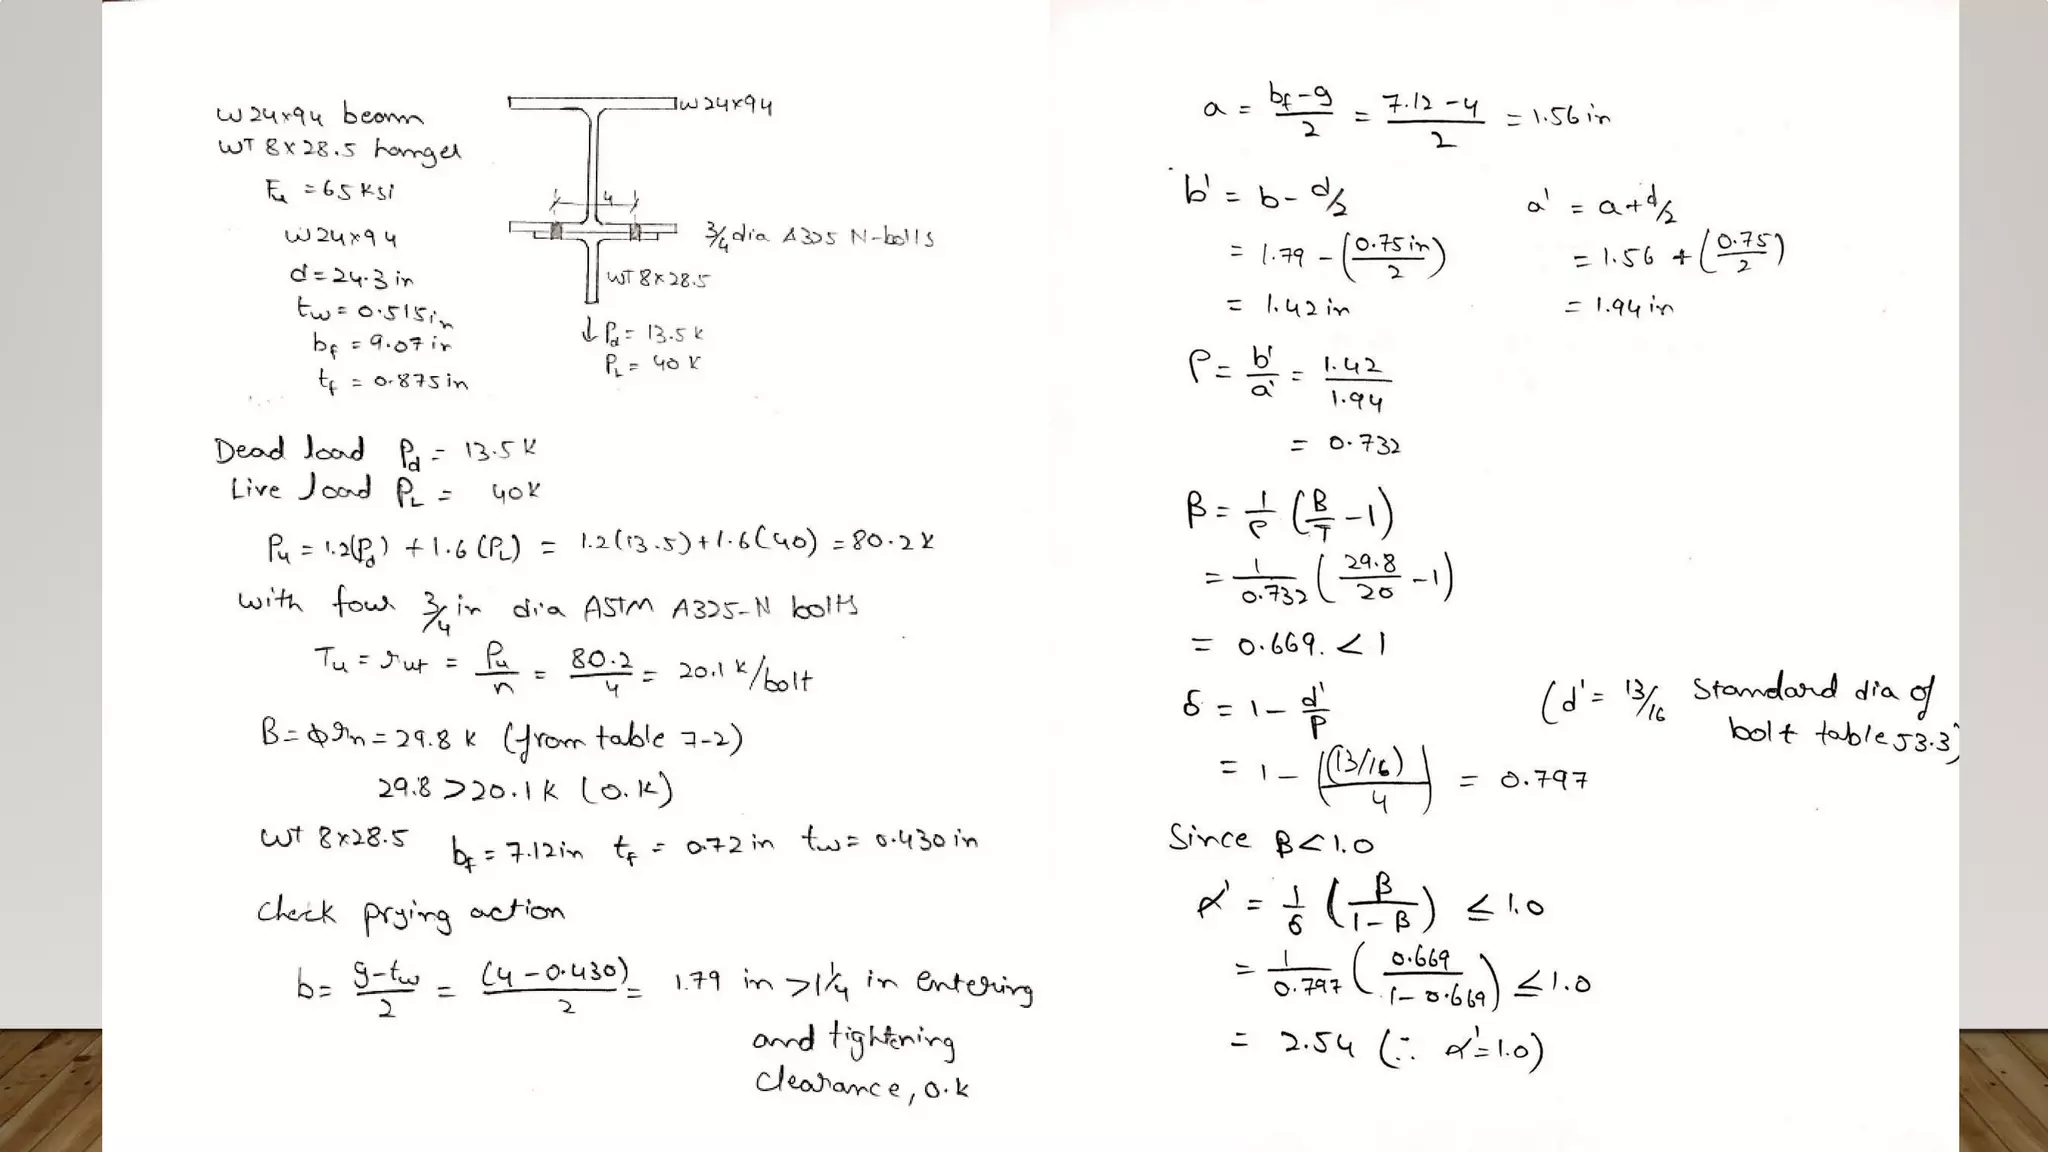 W24x94 beam
WT 8x28.5 hanger
Fu = 65 ksi
W24x94
d = 24.3 in
tw = 0.515 in
bf = 9.07 in
tf = 0.875 in
W24x94
4
3/4 dia A325 N-bolls
WT 8x28.5
↓ Pd = 13.5 k
PL = 40 k
Dead load Pd = 13.5 k
Live load PL = 40k
Pu = 1.2(Pd) + 1.6 (PL) = 1.2(13.5)+1.6(40) = 80.2 k
with four 3/4 in dia ASTM A325-N bolts
Tu = rut = Pu/n = 80.2/4 = 20.1 k/bolt
B = ϕrn = 29.8 k (from table 7-2)
29.8 > 20.1 k (o.k)
WT 8x28.5 bf = 7.12in tf = 0.72 in tw = 0.430 in
Check prying action
b = g-tw/2 = (4-0.430)/2 = 1.79 in > 1 1/4 in entering
and tightening
clearance, o.k
a = bf-g/2 = 7.12-4/2 = 1.56 in
b' = b - d/2
a' = a + d/2
= 1.79 - (0.75 in/2)
= 1.56 + (0.75/2)
= 1.42 in
= 1.94 in
ρ = b'/a' = 1.42/1.94
= 0.732
β = 1/ρ (B/T - 1)
= 1/0.732 (29.8/20 - 1)
= 0.669. < 1
δ = 1 - d'/P
(d' = 13/16 Standard dia of
bolt table J3.3)
= 1 - ((13/16)/4) = 0.797
Since β < 1.0
α' = 1/δ (β/1-β) ≤ 1.0
= 1/0.797 (0.669/1-0.669) ≤ 1.0
= 2.54 (∴ α' = 1.0)